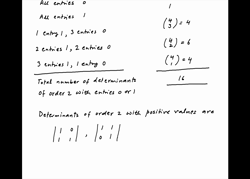 All entries 0 1
All entries 1
1 entry 1, 3 entries 0 (4 3) = 4
2 entries 1, 2 entries 0 (4 2) = 6
3 entries 1, 1 entry 0 (4 1) = 4
Total number of determinants 16
of order 2 with entries 0 or 1
Determinants of order 2 with positive values are
|1 0| , |1 1|
|1 1| |0 1|